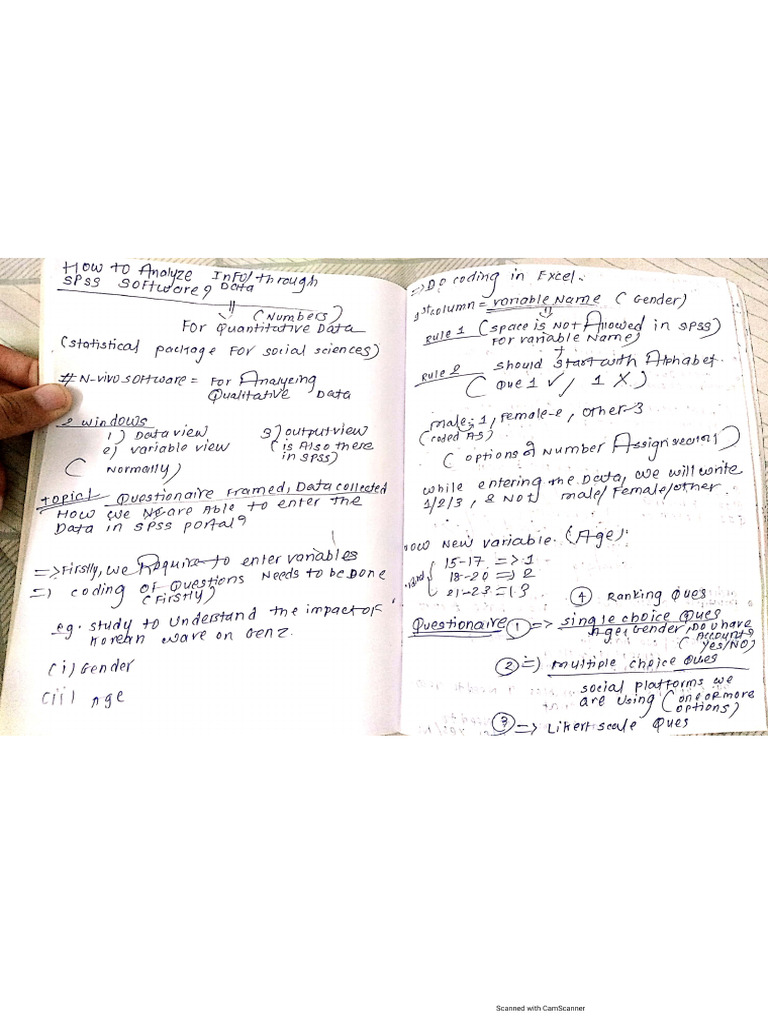 How to Analyze Info/through
SPSS Software, Data
(Numbers)
For Quantitative Data
(statistical package for social sciences)
# N-vivo software = For Analyzing
Qualitative Data
2 windows
1) Data view 3) output view
2) variable view (is Also there
in SPSS)
( Normally)
Topic/ Questionaire Framed, Data collected
How we are Able to enter the
Data in SPSS portal?
=> Firstly, we Require to enter variables
=> coding of Questions Needs to be Done
(Firstly)
eg. study to Understand the impact of
Korean wave on Gen Z.
(i) Gender
(ii) Age
=> Do coding in Excel.
1st column = variable Name ( Gender)
Rule 1 (space is Not Allowed in SPSS)
For variable Name)
Rule 2 should start with Alphabet.
( Que 1 ✓, 1 X )
male-1, Female-2, other-3
(coded As)
( options of Number Assign sectors)
while entering the Data, we will write
1/2/3, & Not male/Female/other.
Now New variable. (Age).
15-17 => 1
18-20 => 2
21-23 => 3
④ Ranking Ques
Questionaire ① => single choice Ques
Age, Gender, Do u have
( Accounts
Yes/No)
② => multiple choice Ques
social platforms we
are using ( one or more
options)
③ => Likert scale Ques
Scanned with CamScanner